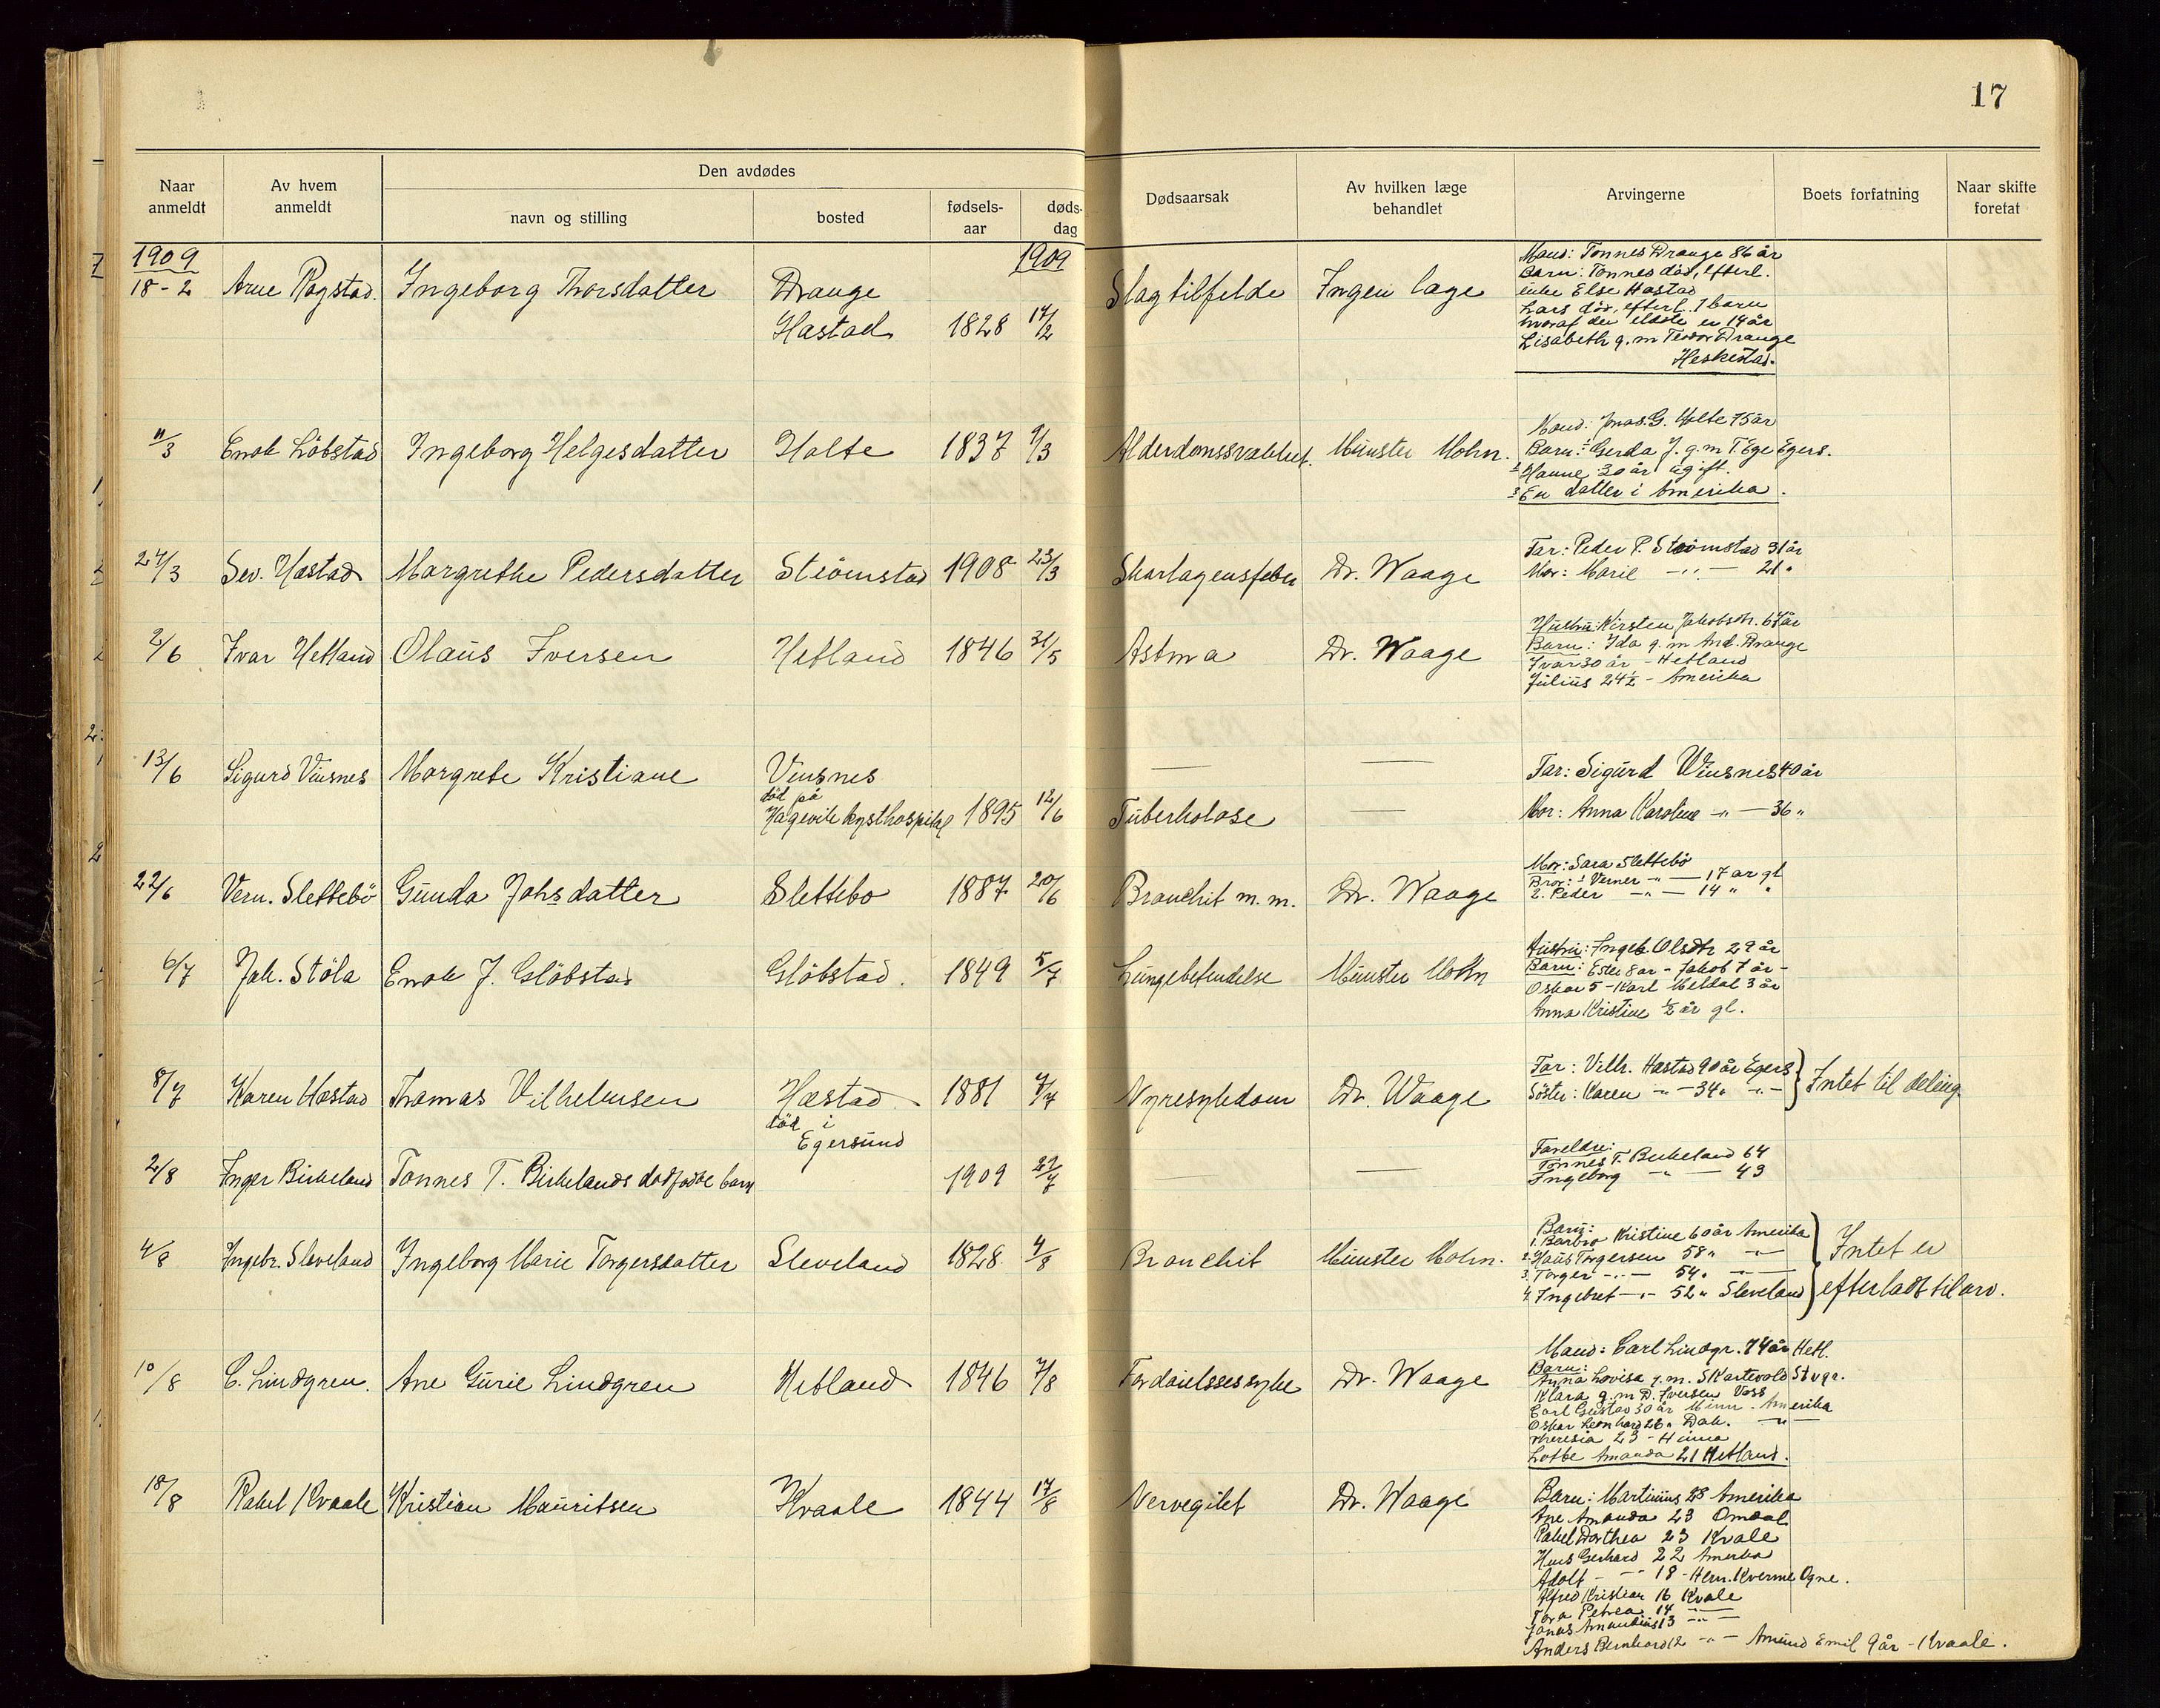 17
Naar anmeldt
Av hvem anmeldt
Den avdødes
navn og stilling
bosted
fødsels-aar
døds-dag
Dødsaarsak
Av hvilken læge behandlet
Arvingerne
Boets forfatning
Naar skifte foretat
1909
1909
18-2 Arne Ragstad. Ingeborg Thorsdatter Drange
Hæstad 1828 14/2 Slagtilfelde Ingen læge
Mand: Tonnes Drange 86 år
Barn: Tonnes död, efterl.
enke Else Hæstad
Lars död, efterl. 7 barn
hvoraf den eldste er 14 år
Lisabeth g. m Teodor Drange
Heskestad.
11/3 Enok Löbstad Ingeborg Helgesdatter Holte 1837 9/3 Alderdomssvækket. Münster Mohn.
Mand: Jonas G. Holte 75 år
Barn: 1 Gerda J. g. m T. Ege Egers.
2 Hanne 30 år ugift.
3 En datter i Amerika.
24/3 Sev. Hæstad Margrethe Pedersdatter Strömstad 1908 23/3 Skarlagensfeber Dr. Waage
Far: Peder P. Strömstad 31 år
Mor: Marie —"— 21 "
2/6 Ivar Hetland Olaus Iversen Hetland 1846 31/5 Astma Dr. Waage
Hustru: Kirsten Jakobsdtr. 67 år
Barn: Ida g. m And. Drange
Ivar 30 år - Hetland
Julius 24½ - Amerika
13/6 Sigurd Viusnes Margrete Kristiane Viusnes
död på
Hagevik kysthospital 1895 12/6 Tuberkolose
Far: Sigurd Wiusnes 40 år
Mor: Anna Karoline —"— 36 "
22/6 Vern. Slettebö Gunda Johsdatter Slettebö 1887 20/6 Bronchit m. m. Dr. Waage
Mor: Sara Slettebö
Bror: 1 Verner —"— 17 år gl
2. Peder —"— 14 " "
6/7 Jak. Stöla Enok J. Glöbstad Glöbstad. 1849 5/7 Lungebetendelse Münster Mohn
Hustru: Ingeb. Olsdtr 29 år
Barn: Ester 8 år - Jakob 7 år -
Oskar 5 - Karl Meldal 3 år
Anna Kristine ½ år gl.
8/7 Karen Hæstad Thomas Vilhelmsen Hæstad
död i
Egersund 1881 7/7 Nyresykdom Dr. Waage
Far: Vilh. Hæstad 90 år Egers
Söster: Karen —"— 34 " —"—
Intet til deling
2/8 Inger Birkeland Tonnes T. Birkelands dodfödte barn 1909 27/7
Foreldre:
Tonnes T. Birkeland 64
Ingeborg —"— 43
4/8 Ingebr. Sleveland Ingeborg Marie Torgersdatter Sleveland 1828 4/8 Bronchit Münster Mohn.
Barn:
1. Barbro Kristine 60 år Amerika
2. Hans Torgersen 58 " —"—
3. Torger —"— 54 " —"—
4. Ingebret —"— 52 " Sleveland
Intet er
efterladt til arv.
10/8 C. Lindgren. Ane Gurie Lindgren Hetland 1846 7/8 Fordöielsessyke Dr. Waage
Mand: Carl Lindgr. 74 år Hetl.
Barn:
Anna Lovisa g. m. S Kartevold Stvgr.
Klara g. m D. Iversen Voss
Carl Gustav 30 år Minn. Amerika
Oskar Leonhard 26 " Dak. —"—
Theresia 23 - Hinna
Lotte Amanda 21 Hetland.
18/8 Rakel Kvaale Kristian Mauritsen Kvaale 1844 17/8 Nervegikt Dr. Waage
Barn: Martinius 28 Amerika
Ane Amanda 23 Omdal
Rakel Dorthea 23 Kvale
Hans Gerhard 22 Amerika
Adolf —"— 18 - Hem. Kverme Ogne.
Alfred Kristian 16 Kvale
Tora Petrea 14 —"—
Jonas Amandius 13 —"—
Anders Bernhard 12 —"— Amund Emil 9 år - Kvaale.